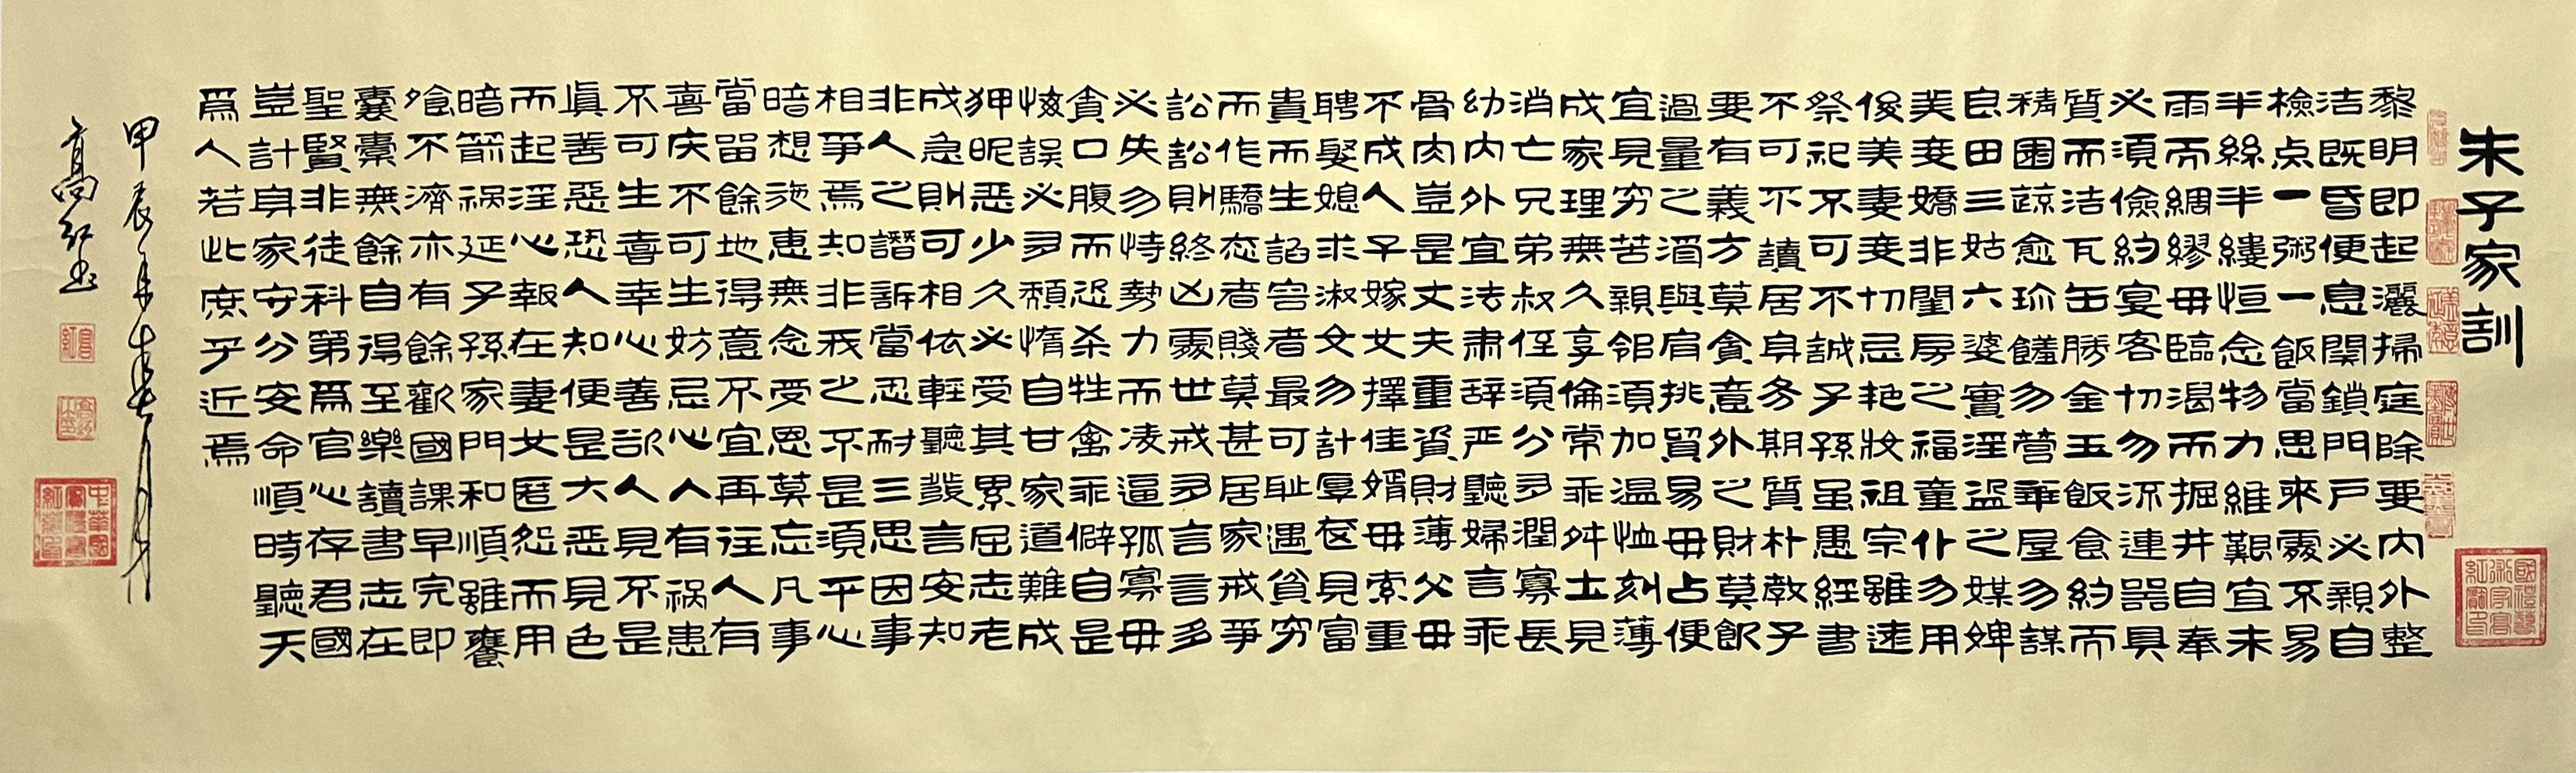 朱子家訓
黎明即起灑掃庭除要內外整
洁既昏便息関鎖門戶必親自
檢点一粥一飯當思來處不易
半絲半縷恒念物力維艱宜未
雨而綢繆毋臨渴而掘井自奉
必須儉約宴客切勿流連器具
質而洁瓦缶勝金玉飯食約而
精園蔬愈珎饈勿營華屋勿謀
良田三姑六婆實淫盜之媒婢
美妾嬌非閨房之福童仆勿用
俊美妻妾切忌艳妝祖宗雖遠
祭祀不可不誠子孫虽愚經書
不可不讀居身务期質朴教子
要有義方莫貪意外之財莫飲
過量之酒與肩挑貿易毋占便
宜見穷苦親邻須加温恤刻薄
成家理無久享倫常乖舛立見
消亡兄弟叔侄須分多潤寡長
幼內外宜法肃辞严聽婦言乖
骨肉豈是丈夫重資財薄父毋
不成人子嫁女擇佳婿毋索重
聘娶媳求淑女勿計厚奁見富
貴而生諂容者最可耻遇貧穷
而作驕态者賤莫甚居家戒爭
訟訟則終凶處世戒多言言多
必失勿恃勢力而凌逼孤寡毋
貪口腹而恣杀牲禽乖僻自是
悔誤必多頹惰自甘家道難成
狎昵恶少久必受其累屈志老
成急則可相依輕聽發言安知
非人之譖訴當忍耐三思因事
相爭焉知非我之不是須平心
暗想施惠無念受恩莫忘凡事
當留餘地得意不宜再往人有
喜庆不可生妨忌心人有祸患
不可生喜幸心善欲人見不是
真善惡恐人知便是大恶見色
而起淫心報在妻女匿怨而用
暗箭祸延子孫家門和順雖饔
飧不濟亦有餘歡國課早完即
囊橐無餘自得至樂讀書志在
聖賢非徒科第爲官心存君國
豈計身家守分安命順時聽天
爲人若此庶乎近焉
甲辰年
高红書